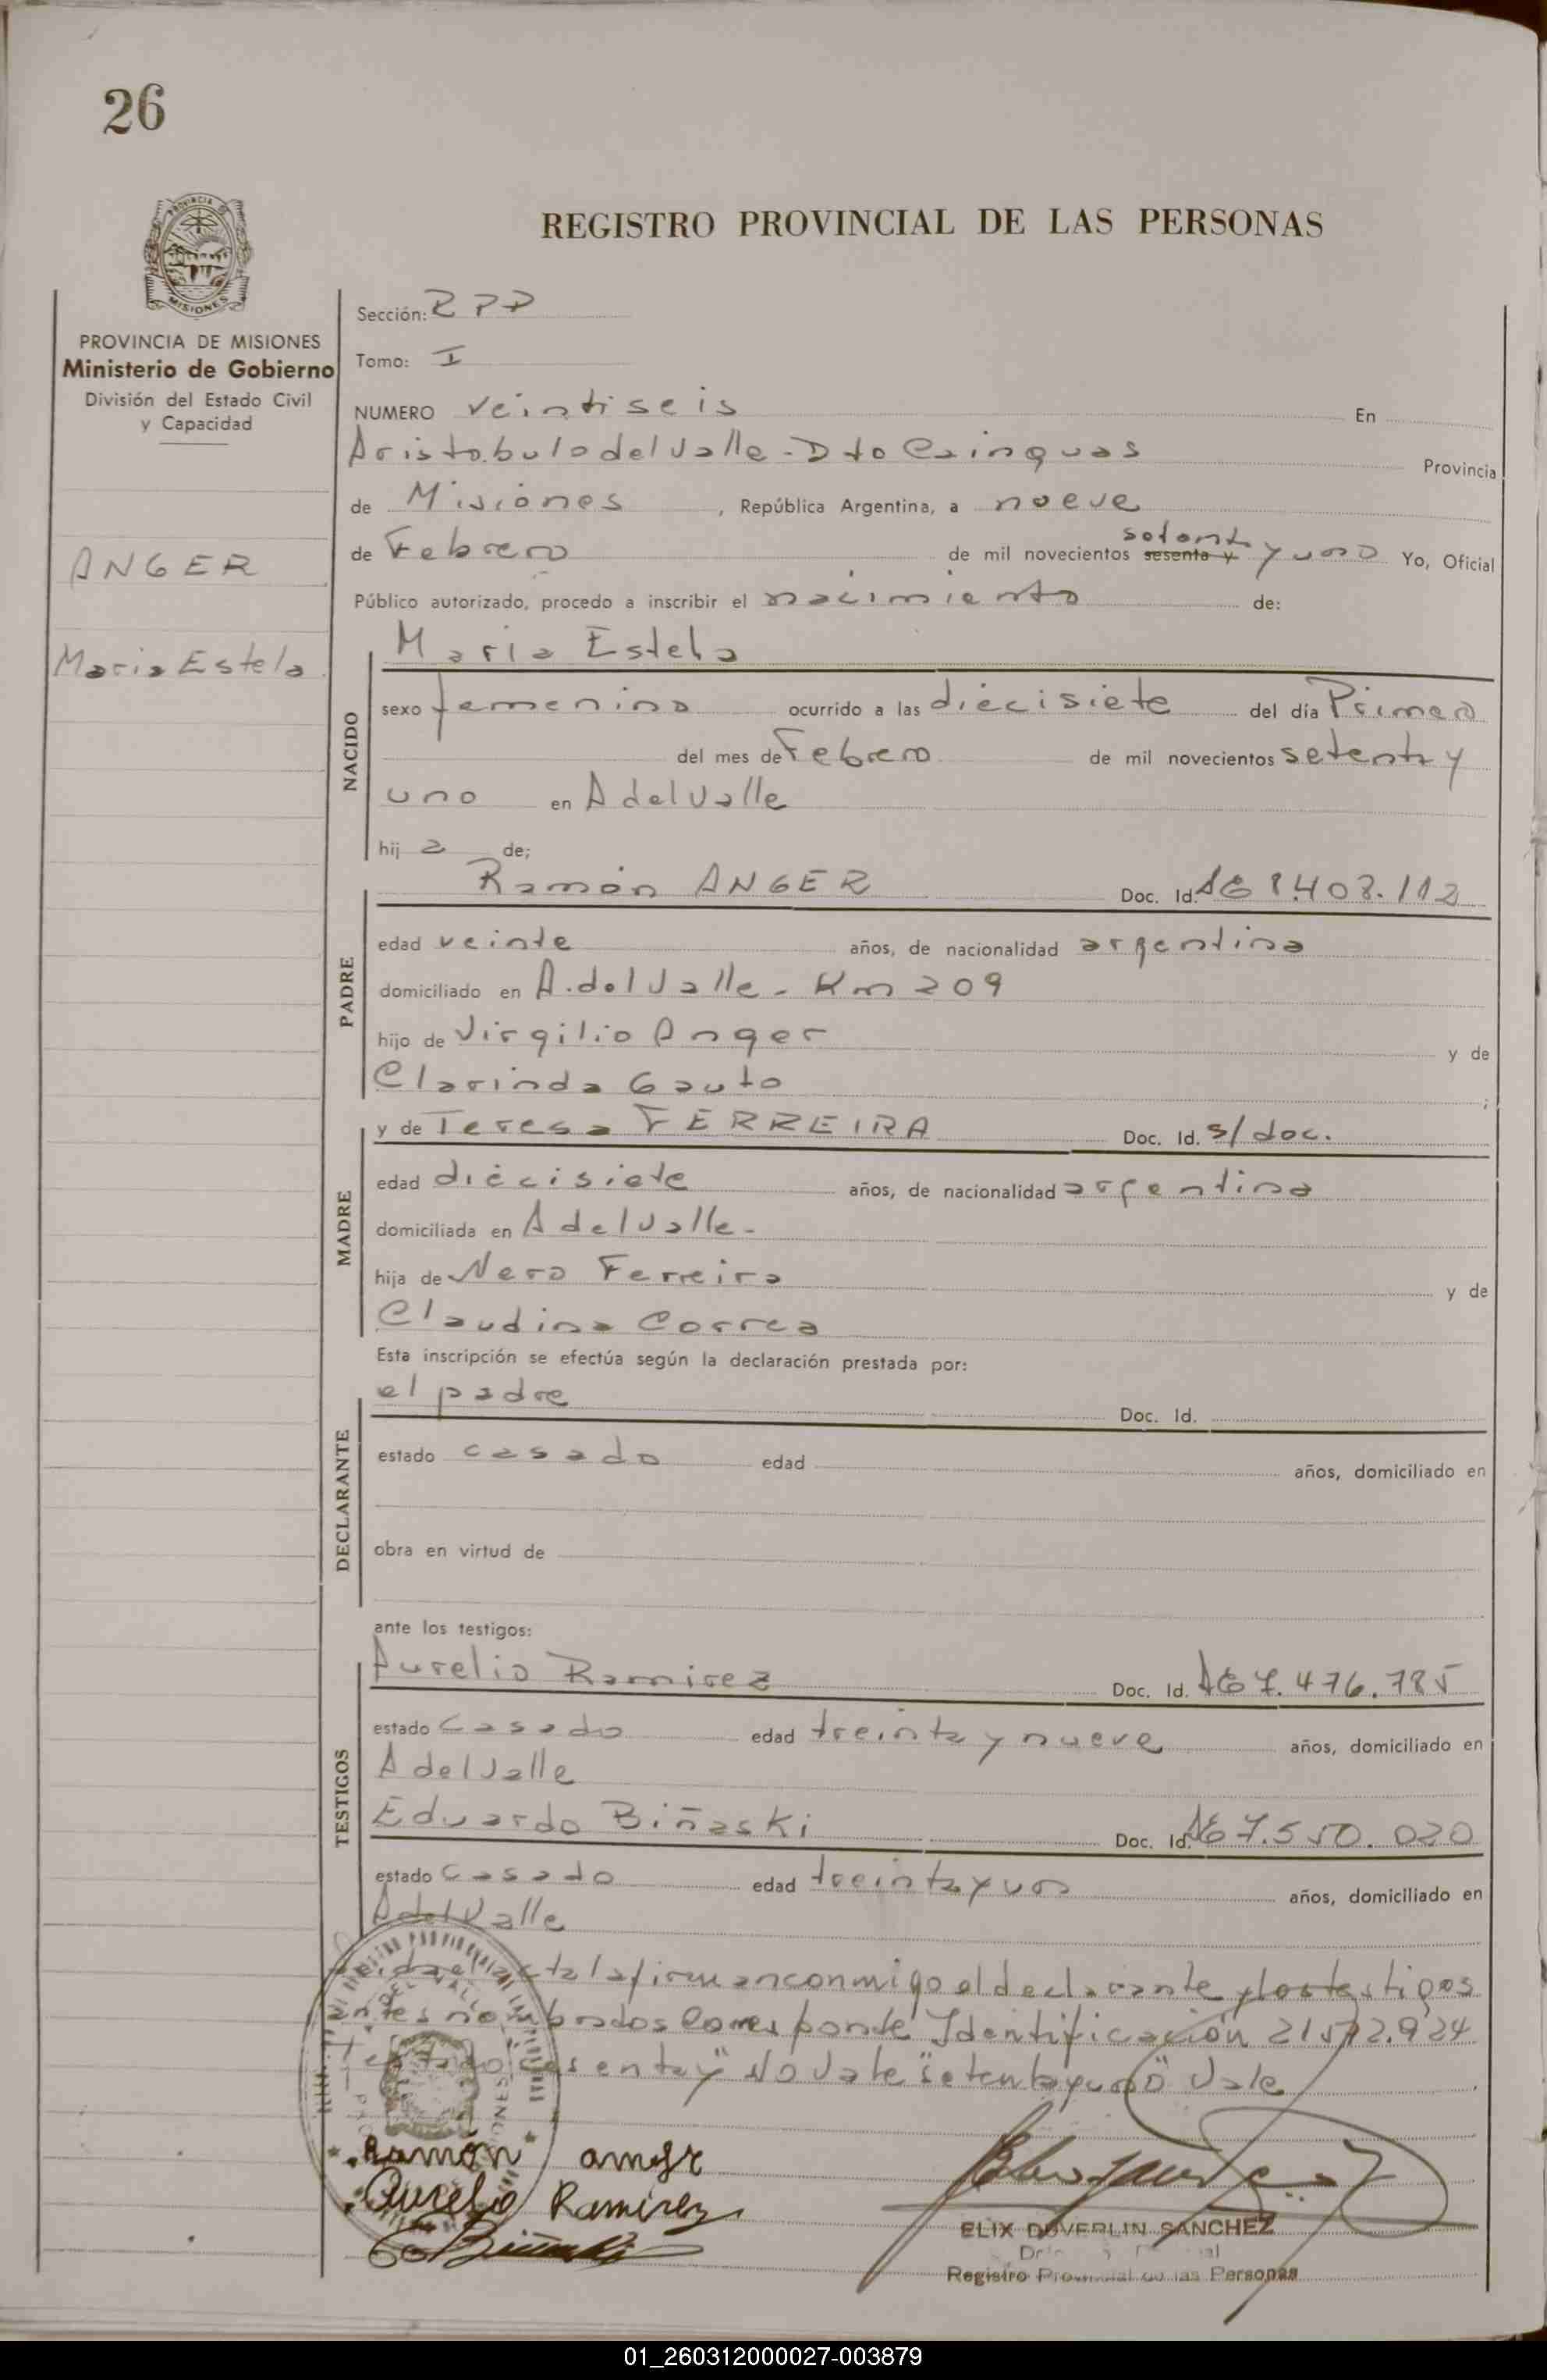 26
REGISTRO PROVINCIAL DE LAS PERSONAS
PROVINCIA DE MISIONES
Ministerio de Gobierno
División del Estado Civil
y Capacidad
ANGER
Maria Estela
Sección: RPP
Tomo: I
NUMERO veintiseis En
Aristobulo del Valle - Dto Cainguas Provincia
de Misiones, República Argentina, a nueve
de Febrero de mil novecientos sesenta y setenta y uno Yo, Oficial
Público autorizado, procedo a inscribir el nacimiento de:
NACIDO
Maria Estela
sexo femenino ocurrido a las diecisiete del día Primero
del mes de Febrero de mil novecientos setenta y
uno en A del Valle
hija de;
PADRE
Ramón ANGER Doc. Id.
edad veinte años, de nacionalidad argentina
domiciliado en A. del Valle - Km 209
hijo de Virgilio Anger y de
Clarinda Gauto;
MADRE
y de Teresa FERREIRA Doc. Id. s/doc.
edad diecisiete años, de nacionalidad argentina
domiciliada en A del Valle -
hija de Nero Ferreira y de
Claudina Correa
Esta inscripción se efectúa según la declaración prestada por:
DECLARANTE
el padre Doc. Id.
estado casado edad años, domiciliado en
obra en virtud de
ante los testigos:
TESTIGOS
Aurelio Ramirez Doc. Id. 7.476.785
estado casado edad treinta y nueve años, domiciliado en
A del Valle
Eduardo Biñaski Doc. Id. 7.550.020
estado casado edad treinta y uno años, domiciliado en
A del Valle
Leida el acta la firman conmigo el declarante y los testigos
antes nombrados Corresponde Identificación 21.572.924
Testado "sesenta y" No Vale "setenta y uno" Vale
Ramón anger
Aurelio Ramirez
ELIX DUVERLIN SANCHEZ
Registro Provincial de las Personas
01_260312000027-003879